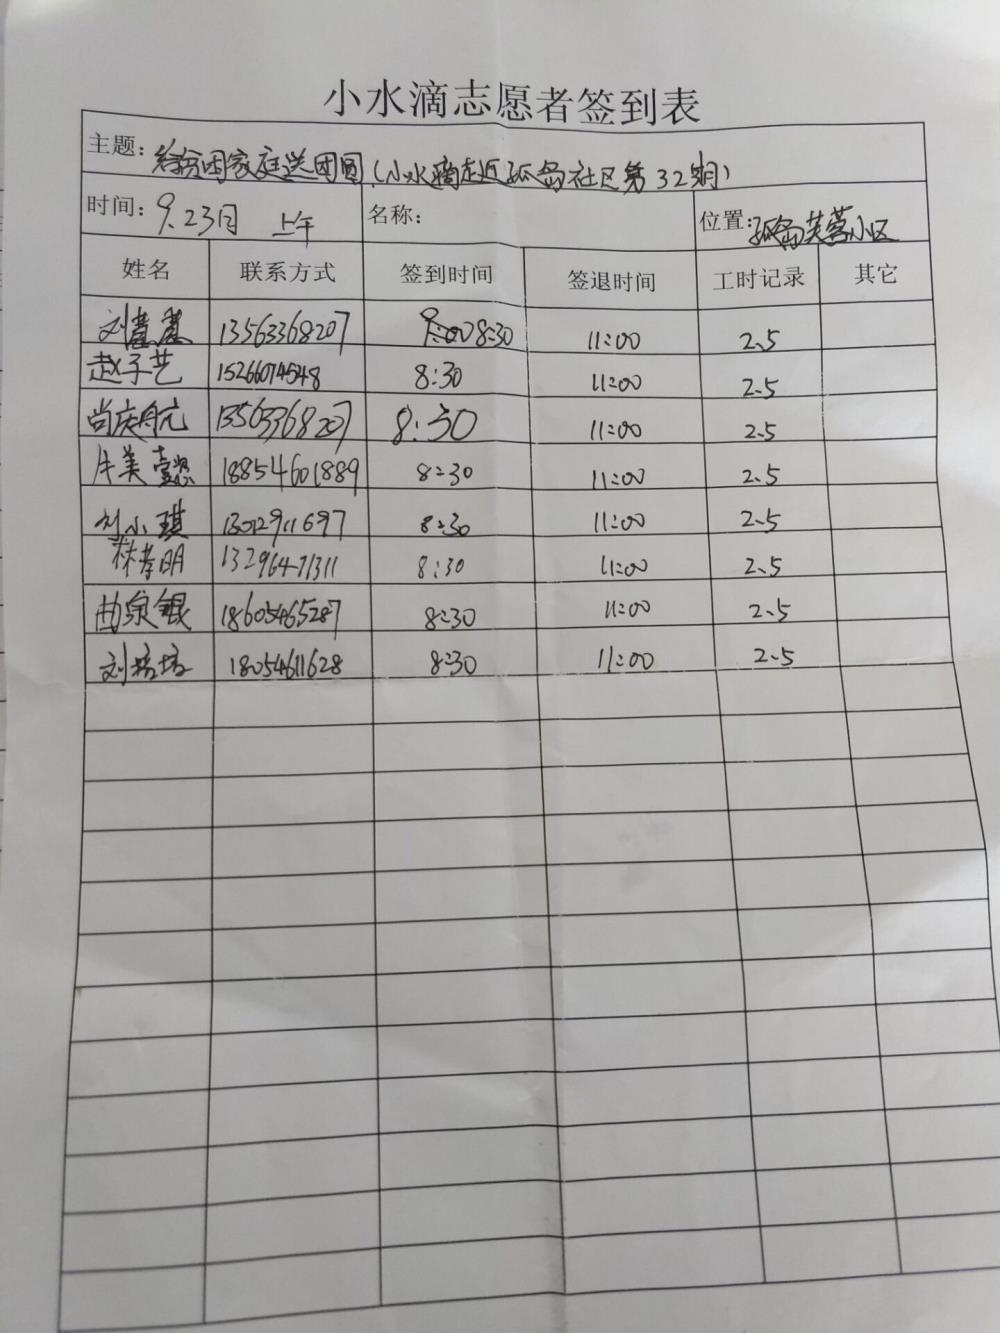 小水滴志愿者签到表
主题: 给贫困家庭送团圆(小水滴走近孤岛社区第32期)
时间: 9.23日 上午 名称: 位置: 孤岛芙蓉小区
姓名 联系方式 签到时间 签退时间 工时记录 其它
刘慧慧 13563368207 8:30 11:00 2.5
赵子艺 15266074548 8:30 11:00 2.5
尚庆航 13563368207 8:30 11:00 2.5
牛美懿 18854601889 8:30 11:00 2.5
刘小琪 13012911697 8:30 11:00 2.5
林孝明 13296471311 8:30 11:00 2.5
曲泉银 18605465287 8:30 11:00 2.5
刘培培 18054611628 8:30 11:00 2.5